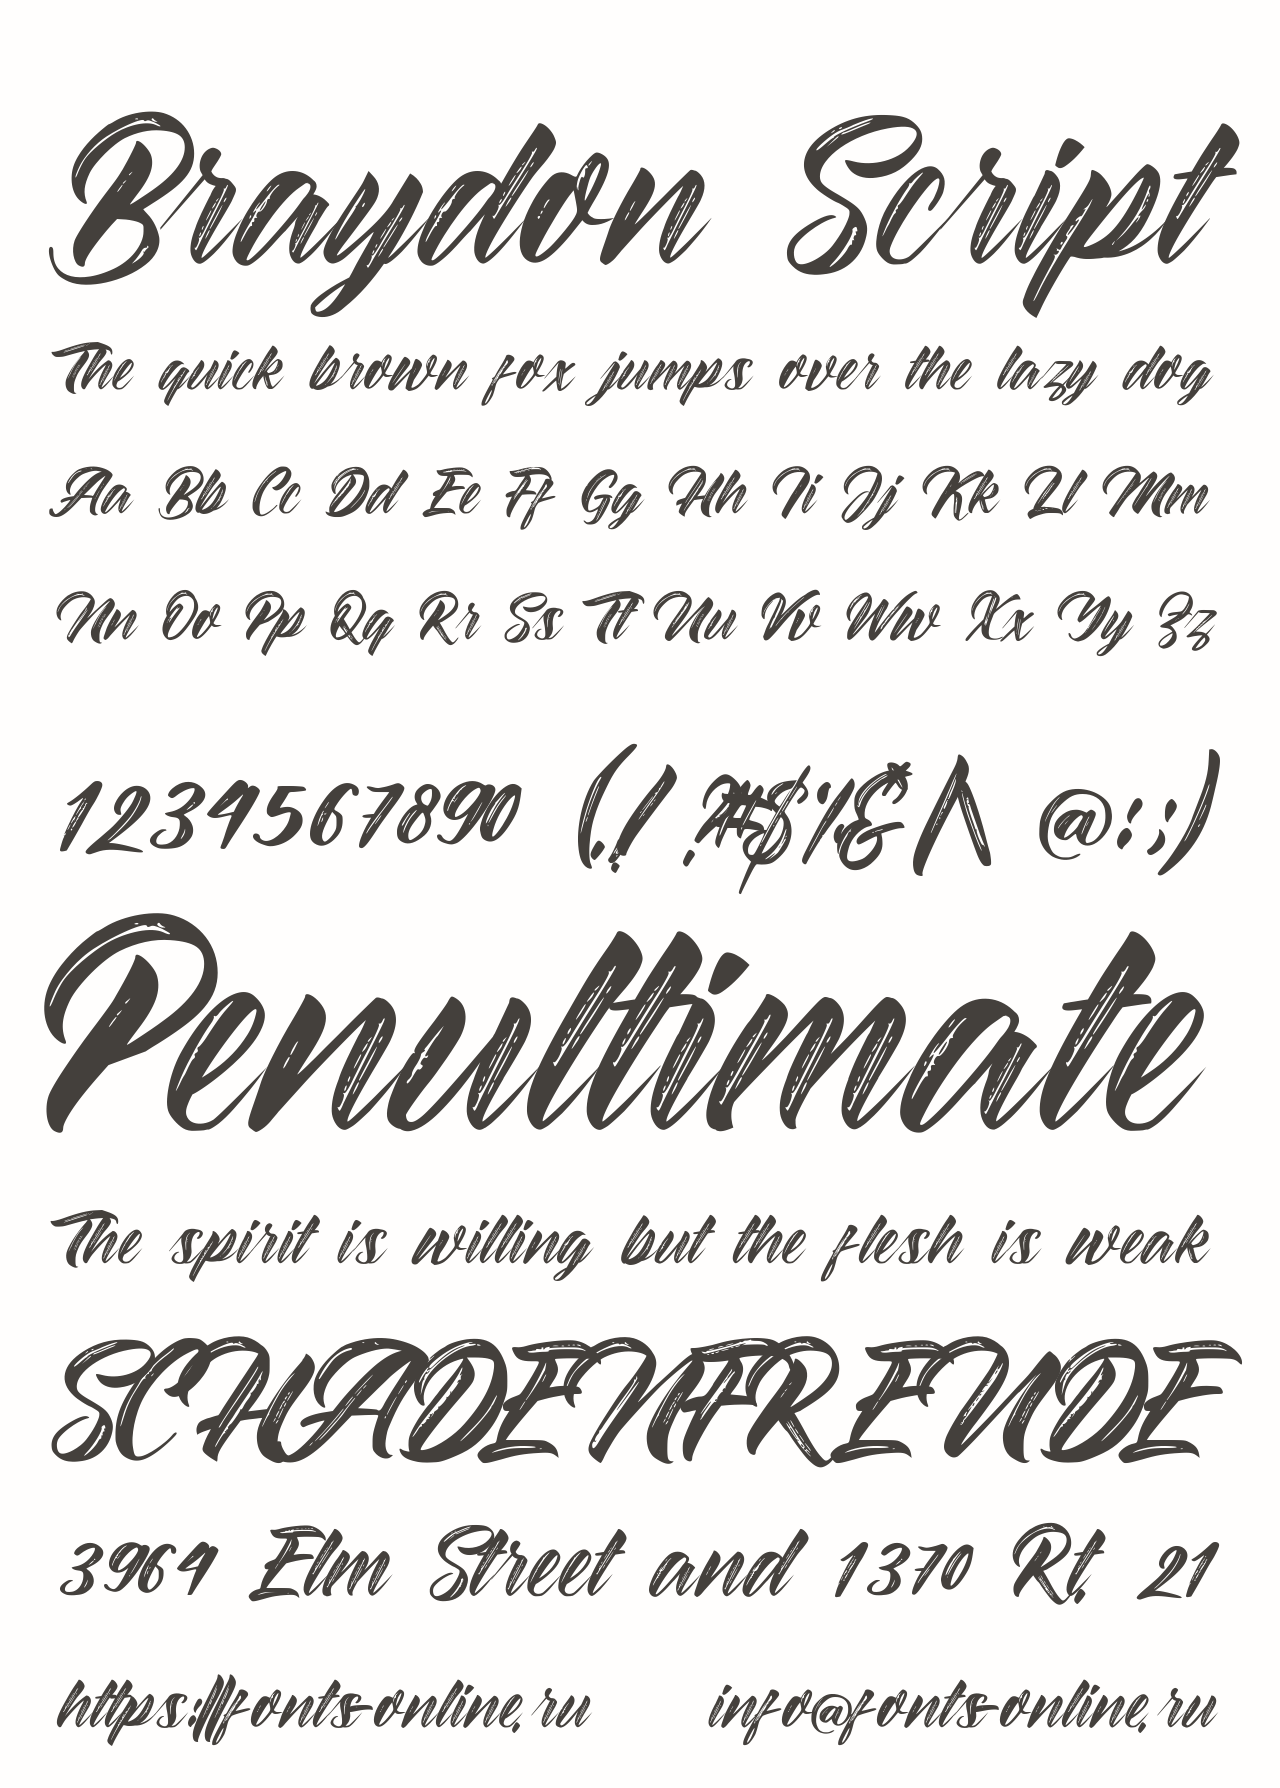 Braydon Script
The quick brown fox jumps over the lazy dog
Aa Bb Cc Dd Ee Ff Gg Hh Ii Jj Kk Ll Mm
Nn Oo Pp Qq Rr Ss Tt Uu Vv Ww Xx Yy Zz
1234567890 (.,! ?#$%&*/\ @:;)
Penultimate
The spirit is willing but the flesh is weak
SCHADENFREUDE
3964 Elm Street and 1370 Rt. 21
https://fonts-online.ru info@fonts-online.ru